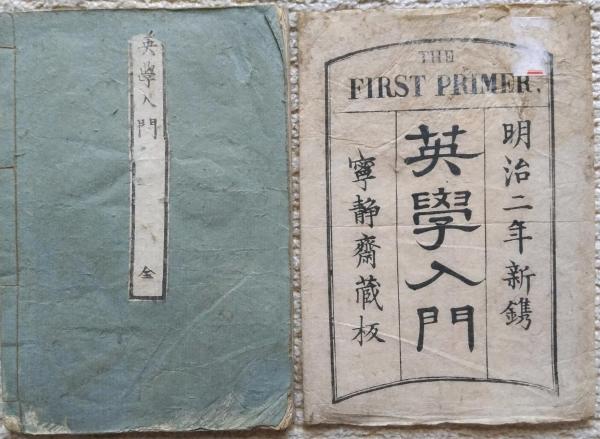 英學入門
全
THE
FIRST PRIMER.
明治二年新鐫
英學入門
寧静齋蔵板